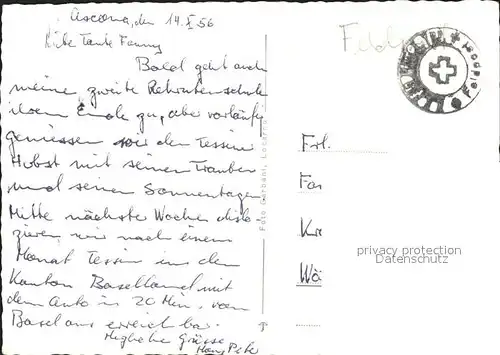 Ascona, den 14.X.56
Liebe Tante Fanny
Bald geht auch
meine zweite Rekrutenschule
ihrem Ende zu, aber vorläufig
geniessen wir den Tessiner
Herbst mit seinen Trauben
und seinen Sonnentagen
Mitte nächste Woche dislo-
zieren wir nach einem
Monat Tessin in den
Kanton Baselland mit
dem Auto in 20 Min. von
Basel aus erreichbar.
Herzliche Grüsse
Hans Peter
Foto Garbani, Locarno
Feldpost
Feldpost
Frl.
Fan
Kr
Wä
privacy protection
Datenschutz